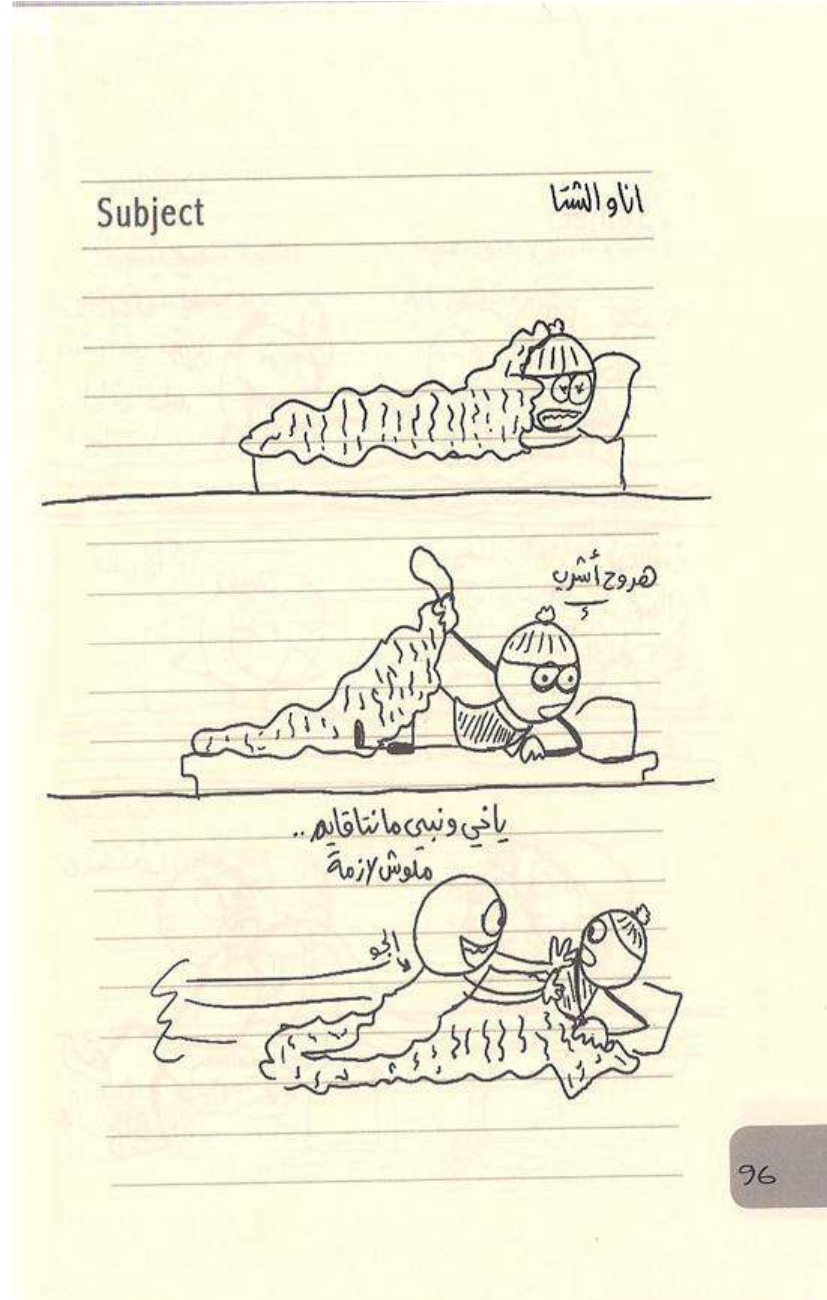 Subject
انا و الشتا
هروح أشرب
يا خي ونبي مانتا قايم ..
ملوش لازمة
الجو
96